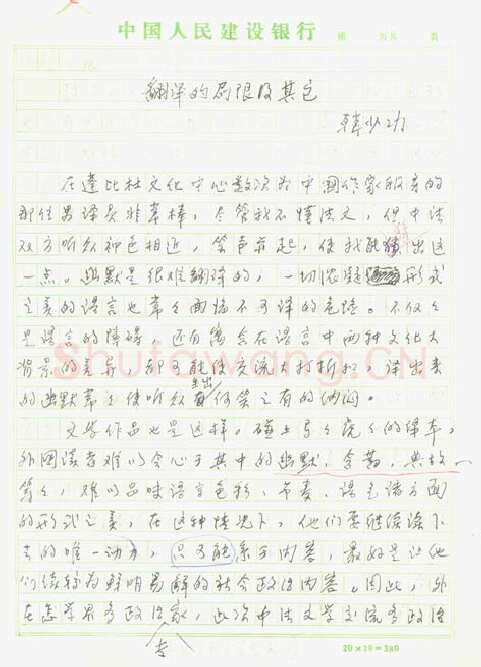 中国人民建设银行
翻译的局限及其它
韩少功
在蓬比杜文化中心数次为中国作家服务的
那位男译员非常棒,尽管我不懂法文,但中法
双方听众神色相近,笑声齐起,使我能猜出这
一点。幽默是很难翻译的,一切浓凝形式
之美的语言也常常面临不可译的危险。不仅仅
是语言的障碍,还有隐含在语言中两种文化大
背景的差异,都可能使交流大打折扣,译出来
的幽默常常使听众生出何笑之有的纳闷。
文学作品也是这样。碰上马马虎虎的译本,
外国读者难以会心于其中的幽默,含蓄,典故
等等,难以品味语言色彩、节奏、语气诸方面
的形式之美,在这种情况下,他们要继续读下
去的唯一动力,只可能系于内容,最好是让他
们读较为鲜明易解的社会政治内容。因此,外
在 学 政治家,此次中法文学交流 政治
Shutawang.CN
20×19=380